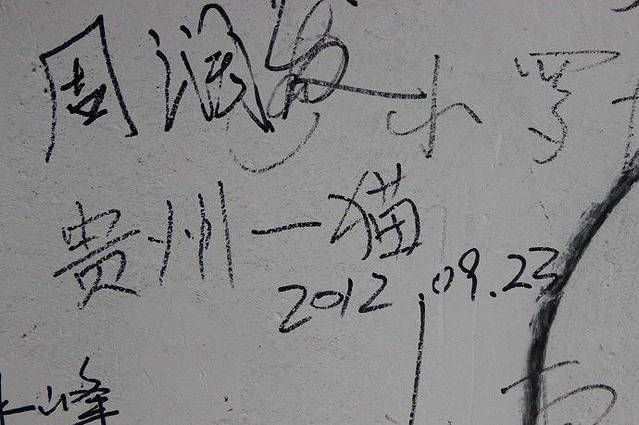 周润发 小罗
贵州一猫
2012.09.23
峰